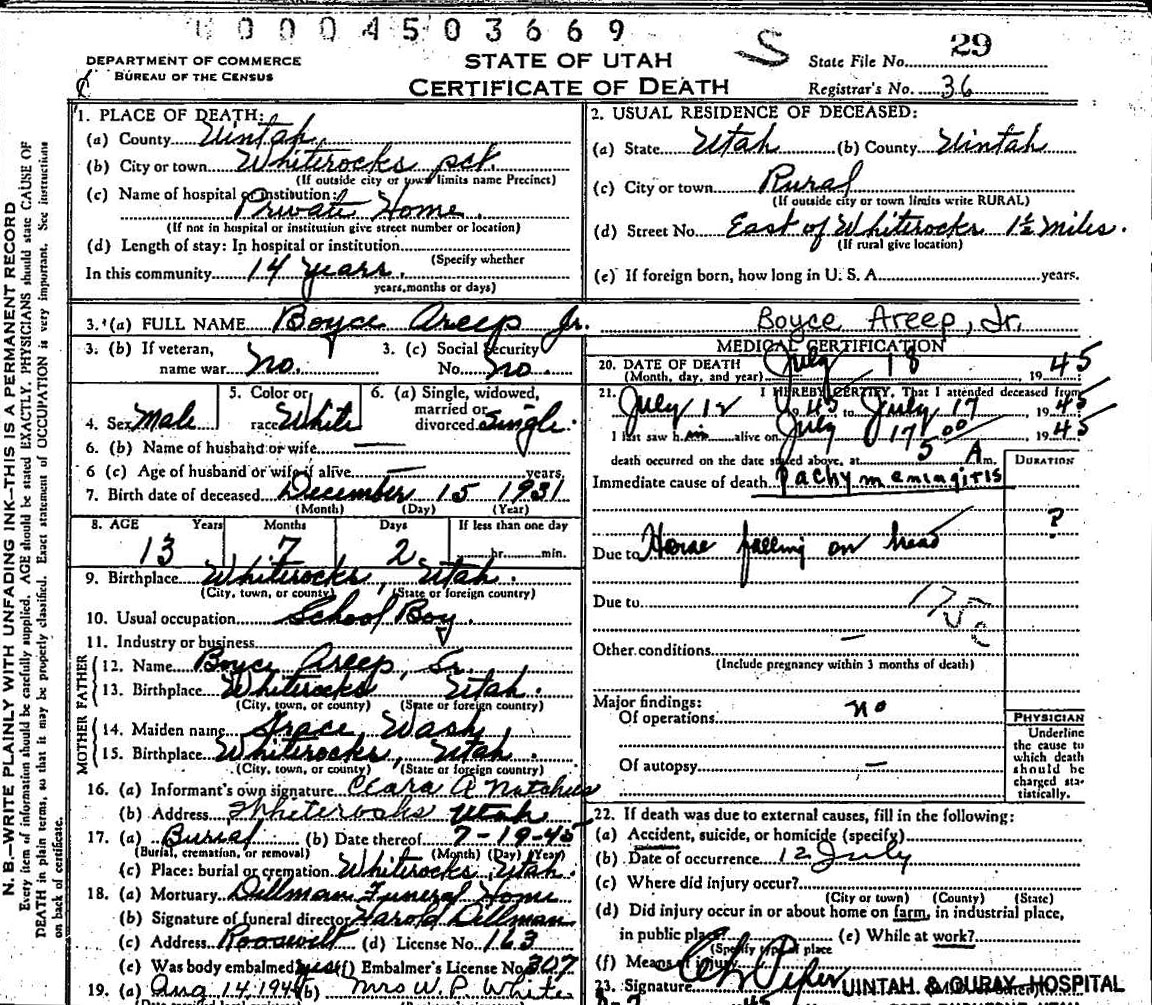 0 0 0 4 5 0 3 6 6 9
DEPARTMENT OF COMMERCE
BUREAU OF THE CENSUS
STATE OF UTAH
CERTIFICATE OF DEATH
S
State File No. 29
Registrar's No. 36
N. B.—WRITE PLAINLY WITH UNFADING INK—THIS IS A PERMANENT RECORD
Every item of information should be carefully supplied. AGE should be stated EXACTLY. PHYSICIANS should state CAUSE OF
DEATH in plain terms, so that it may be properly classified. Exact statement of OCCUPATION is very important. See instructions
on back of certificate.
1. PLACE OF DEATH:
(a) County Uintah
(b) City or town Whiterocks pct.
(If outside city or town limits name Precinct)
(c) Name of hospital or institution:
Private Home.
(If not in hospital or institution give street number or location)
(d) Length of stay: In hospital or institution
(Specify whether
In this community 14 years.
years, months or days)
2. USUAL RESIDENCE OF DECEASED:
(a) State Utah (b) County Uintah
(c) City or town Rural
(If outside city or town limits write RURAL)
(d) Street No. East of Whiterocks 1½ miles.
(If rural give location)
(e) If foreign born, how long in U. S. A. years.
3. (a) FULL NAME Boyce Areep Jr. Boyce Areep, Jr.
3. (b) If veteran, name war no.
3. (c) Social Security No. no.
4. Sex Male
5. Color or race White
6. (a) Single, widowed, married or divorced Single.
6. (b) Name of husband or wife —
6 (c) Age of husband or wife if alive — years.
7. Birth date of deceased December 15 1931
(Month) (Day) (Year)
8. AGE Years Months Days If less than one day
13 7 2 hr. min.
9. Birthplace Whiterocks, Utah.
(City, town, or county) (State or foreign country)
10. Usual occupation School Boy
11. Industry or business
FATHER
12. Name Boyce Areep, Sr.
13. Birthplace Whiterocks Utah.
(City, town, or county) (State or foreign country)
MOTHER
14. Maiden name Grace Wash
15. Birthplace Whiterocks, Utah.
(City, town, or county) (State or foreign country)
16. (a) Informant's own signature Clara A Natchees
(b) Address Whiterocks Utah
17. (a) Burial (b) Date thereof 7-19-45
(Burial, cremation, or removal) (Month) (Day) (Year)
(c) Place: burial or cremation Whiterocks, Utah.
18. (a) Mortuary Dillman Funeral Home
(b) Signature of funeral director Harold Dillman
(c) Address Roosevelt (d) License No. 163
(e) Was body embalmed yes (f) Embalmer's License No. 307
19. (a) Aug 14, 194 (b) Mrs W. P. White
MEDICAL CERTIFICATION
20. DATE OF DEATH July 18, 1945
(Month, day, and year)
21. I HEREBY CERTIFY, That I attended deceased from
July 12 1945 to July 17 1945
I last saw him alive on July 17 1945
death occurred on the date stated above, at 5 00 A m.
DURATION
Immediate cause of death Pachymeningitis
?
Due to Horse falling on head
Due to
Other conditions —
(Include pregnancy within 3 months of death)
Major findings:
Of operations no
Of autopsy —
PHYSICIAN
Underline
the cause to
which death
should be
charged sta-
tistically.
22. If death was due to external causes, fill in the following:
(a) Accident, suicide, or homicide (specify)
(b) Date of occurrence 12 July
(c) Where did injury occur?
(City or town) (County) (State)
(d) Did injury occur in or about home on farm, in industrial place,
in public place? (e) While at work?
(Specify type of place
(f) Means of injury
23. Signature Piper UINTAH & OURAY HOSPITAL